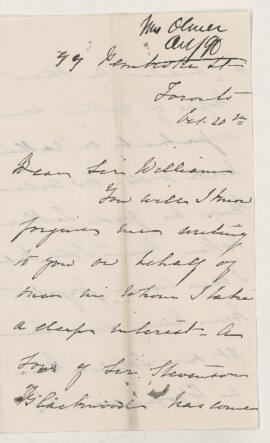 Mrs Oliver
Oct/90
99 Pembroke St
Toronto
Oct. 20th
Dear Sir William
You will I know
forgive me writing
to you on behalf of
one in whom I take
a deep interest. A
son of Sir Stevenson
Blackwood's has come